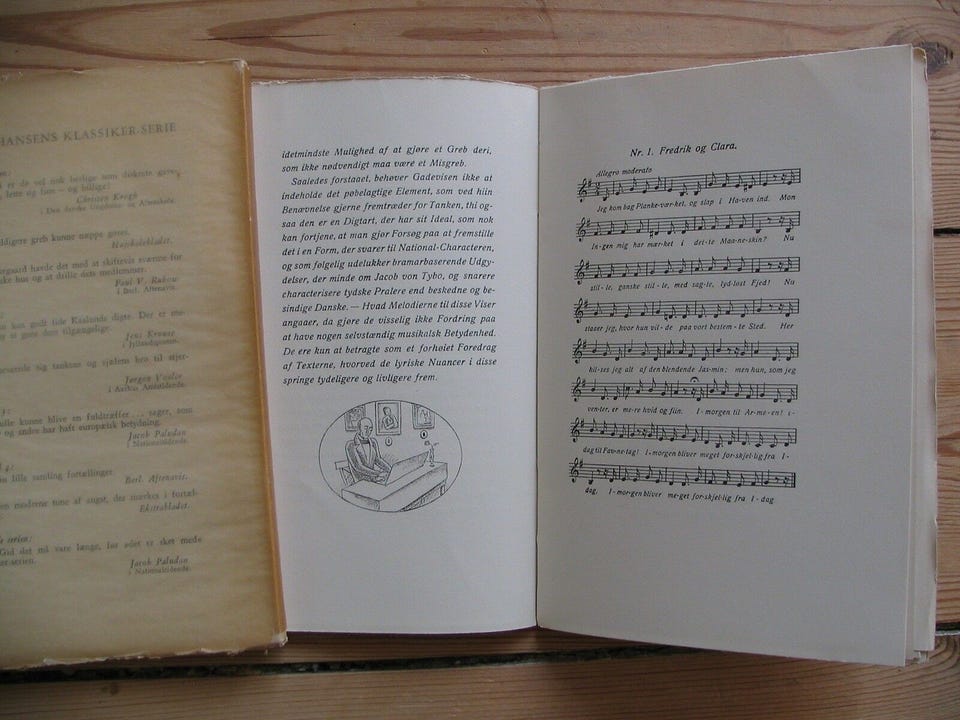 HANSENS KLASSIKER-SERIE
er de vel nok herlige som diskrete gaver,
lette og fine — og billige!
Christen Kragh
i Den danske Ungdoms- og Aftenskole.
ldigere greb kunne næppe gøres.
Højskolebladet.
gaard havde det med at skiftevis sværme for
ke hus og at drille dets medlemmer.
Paul V. Rubow
i Berl. Aftenavis.
kan godt lide Kaalunds digte. Der er
gøre dem tilgængelige.
Jens Kruuse
i Jyllandsposten.
sig tankens og sjælens bro til
Jørgen Vosler
i Aarhus Amtstidende.
kunne blive en fuldtræffer ... sager, som
og andre har haft europæisk betydning.
Jacob Paludan
i Nationaltidende.
lille samling fortællinger.
Berl. Aftenavis.
moderne tone af angst, der mærkes i
Ekstrabladet.
serien:
Gid det må vare længe, før ødet er sket mede
er-serien.
Jacob Paludan
i Nationaltidende.
idetmindste Mulighed af at gjøre et Greb deri,
som ikke nødvendigt maa være et Misgreb.
Saaledes forstaaet, behøver Gadevisen ikke at
indeholde det pøbelagtige Element, som ved hiin
Benævnelse gjerne fremtræder for Tanken, thi og-
saa den er en Digtart, der har sit Ideal, som nok
kan fortjene, at man gjør Forsøg paa at fremstille
det i en Form, der svarer til National-Characteren,
og som følgelig udelukker bramarbaserende Udgy-
delser, der minde om Jacob von Tybo, og snarere
characterisere tydske Pralere end beskedne og be-
sindige Danske. — Hvad Melodierne til disse Viser
angaaer, da gjøre de visselig ikke Fordring paa
at have nogen selvstændig musikalsk Betydenhed.
De ere kun at betragte som et forhøiet Foredrag
af Texterne, hvorved de lyriske Nuancer i disse
springe tydeligere og livligere frem.
Nr. 1. Fredrik og Clara.
Allegro moderato
Jeg kom bag Planke-vær-ket, og slap i Ha-ven ind. Mon
In-gen mig har mær-ket i det-te Maa-ne-skin? Nu
stil-le, ganske stil-le, med sag-te, lyd-løst Fjed! Nu
staaer jeg, hvor hun vil-de paa vort bestem-te Sted. Her
hil-ses jeg alt af den blendende Jas-min; men hun, som jeg
ven-ter, er me-re hvid og fiin. I-morgen til Ar-me-en! i-
dag til Fav-ne-tag! I-morgen bliver meget for-skjel-lig fra I-
dag, I-mor-gen bliver me-get for-skjel-lig fra I-dag.